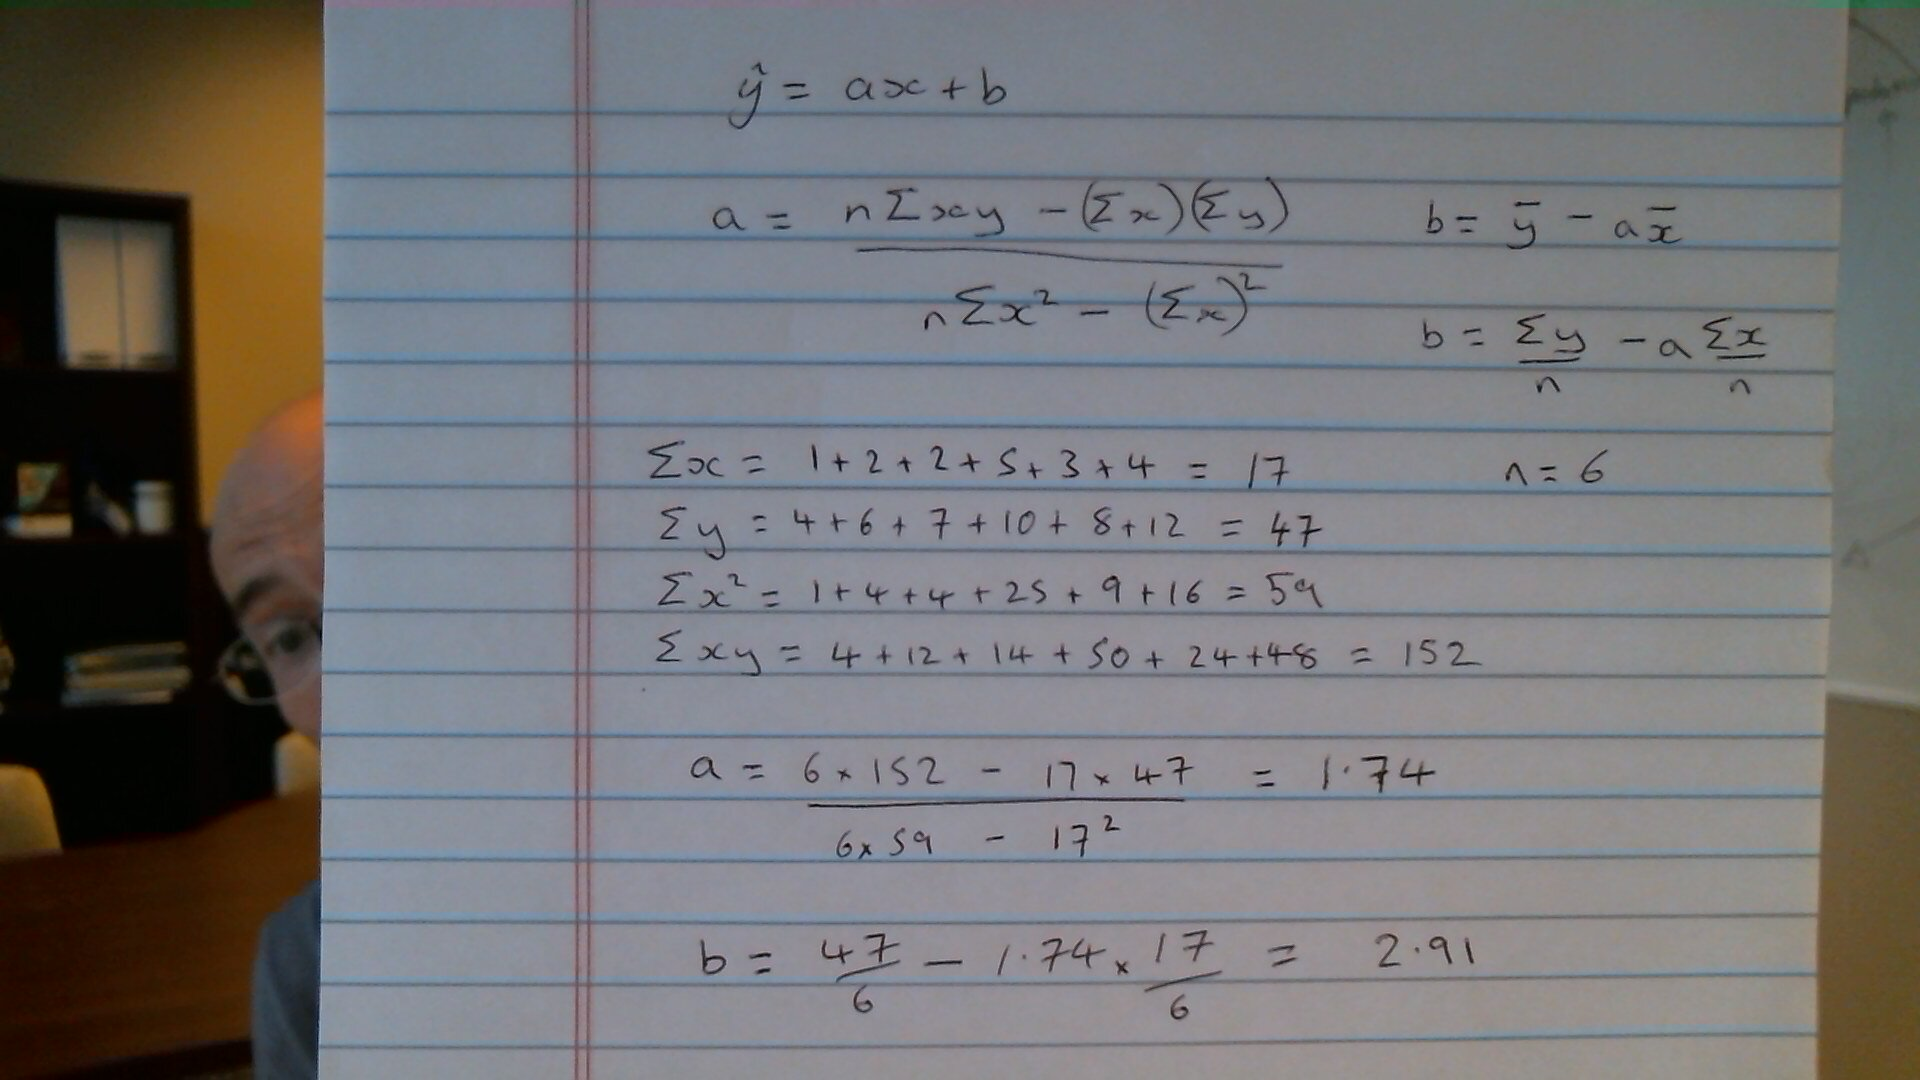 ŷ = ax + b
a = nΣxy - (Σx)(Σy) / nΣx² - (Σx)²
b = ȳ - ax̄
b = Σy/n - a Σx/n
Σx = 1 + 2 + 2 + 5 + 3 + 4 = 17
n = 6
Σy = 4 + 6 + 7 + 10 + 8 + 12 = 47
Σx² = 1 + 4 + 4 + 25 + 9 + 16 = 59
Σxy = 4 + 12 + 14 + 50 + 24 + 48 = 152
a = 6 × 152 - 17 × 47 / 6 × 59 - 17² = 1·74
b = 47/6 - 1·74 × 17/6 = 2·91